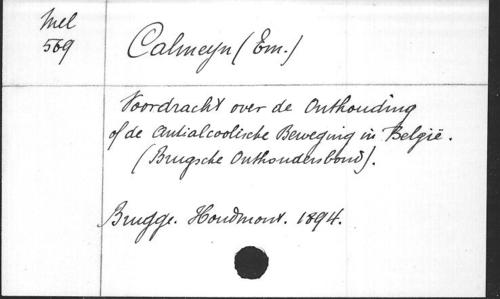 Mel
569
Calmeyn (Em.)
Voordracht over de Onthouding
of de Antialcoolische Beweging in België.
(Brugsche Onthoudersbond).
Brugge. Houdmont. 1894.